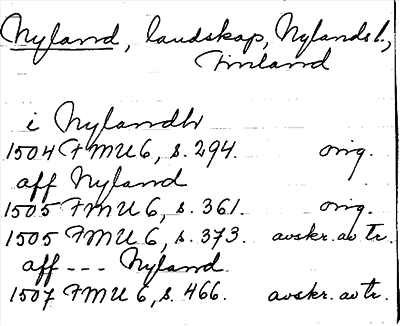 Nyland, landskap, Nylands l.,
Finland
i Nylandh
1504 FMU 6, s. 294. orig.
aff Nyland
1505 FMU 6, s. 361. orig.
1505 FMU 6, s. 373. avskr. av tr.
aff --- Nyland.
1507 FMU 6, s. 466. avskr. av tr.